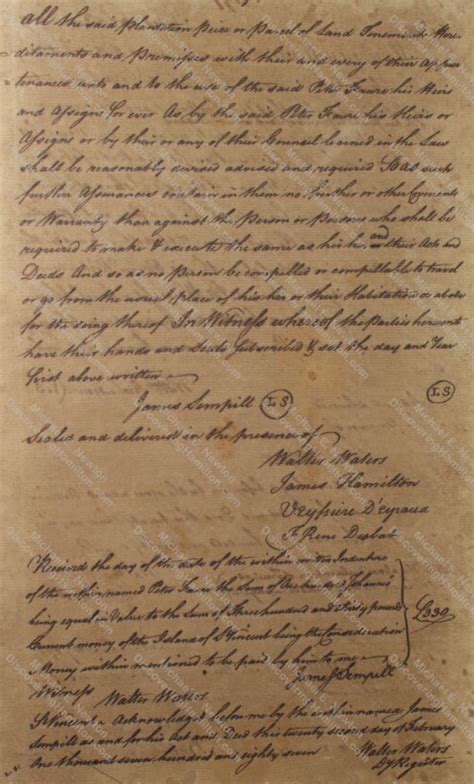 all the said Plantation Peice or Parcel of Land Tenements Here-
ditaments and Premisses with their and every of their Appur
tenances unto and to the use of the said Peter Faure his Heirs
and Assigns for ever As by the said Peter Faure his Heirs or
Assigns or by their or any of their Council Learned in the Law
shall be reasonably devised advised and required So as such
further Assurances contain in them no further or other Covenants
or Warranty than against the Person or Persons who shall be
required to make & execute the same as his her and their Acts and
Deeds And so as no Person be compelled or compellable to travel
or go from the usual place of his her or their Habitation or abode
for the doing thereof In Witness whereof the Parties hereunto
have their hands and Seals Subscribed & set the day and Year
first above written
James Sempill LS LS
Sealed and delivered in the presence of
Walter Waters
James Hamilton
Veyssiere D'eyraud
F. Rene Dasbat
Received the day of the date of the within written Indenture
of the within named Peter Faure the Sum of One hundred Johannes
being equal in Value to the Sum of Three hundred and Thirty pounds
Current money of the Island of St Vincent being the Consideration
Money within mentioned to be paid by him to me
£330
James Sempill
Witness
Walter Waters
St Vincent Acknowledged before me by the within named James
Sempill as and for his Act and Deed this twenty second day of February
One thousand seven hundred and eighty seven
Walter Waters
Dy Register
Michael E. Newton
DiscoveringHamilton.com